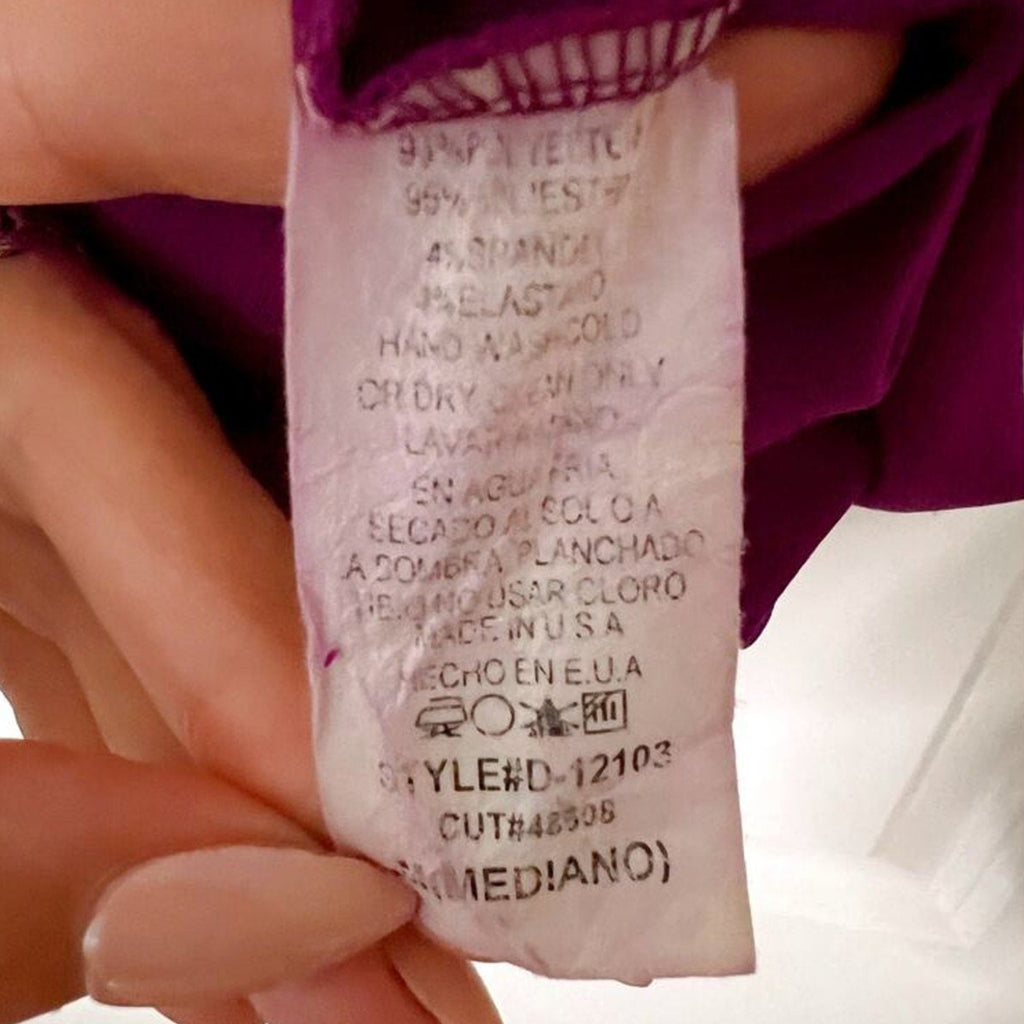 4%SPANDEX
4%ELASTANO
HAND WASH COLD
OR DRY CLEAN ONLY
LAVAR A MANO
EN AGUA FRIA
SECADO AL SOL O A
A SOMBRA PLANCHADO
NO USAR CLORO
MADE IN U.S.A
HECHO EN E.U.A
STYLE#D-12103
CUT#
(MEDIANO)